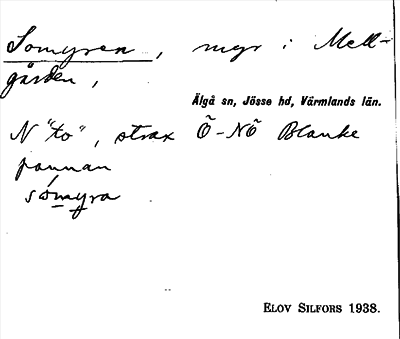 Somyren, myr i Mell-
gården,
Älgå sn, Jösse hd, Värmlands län.
N "to", strax Ö-NÖ Blanke
pannan
sómyra
ELOV SILFORS 1938.